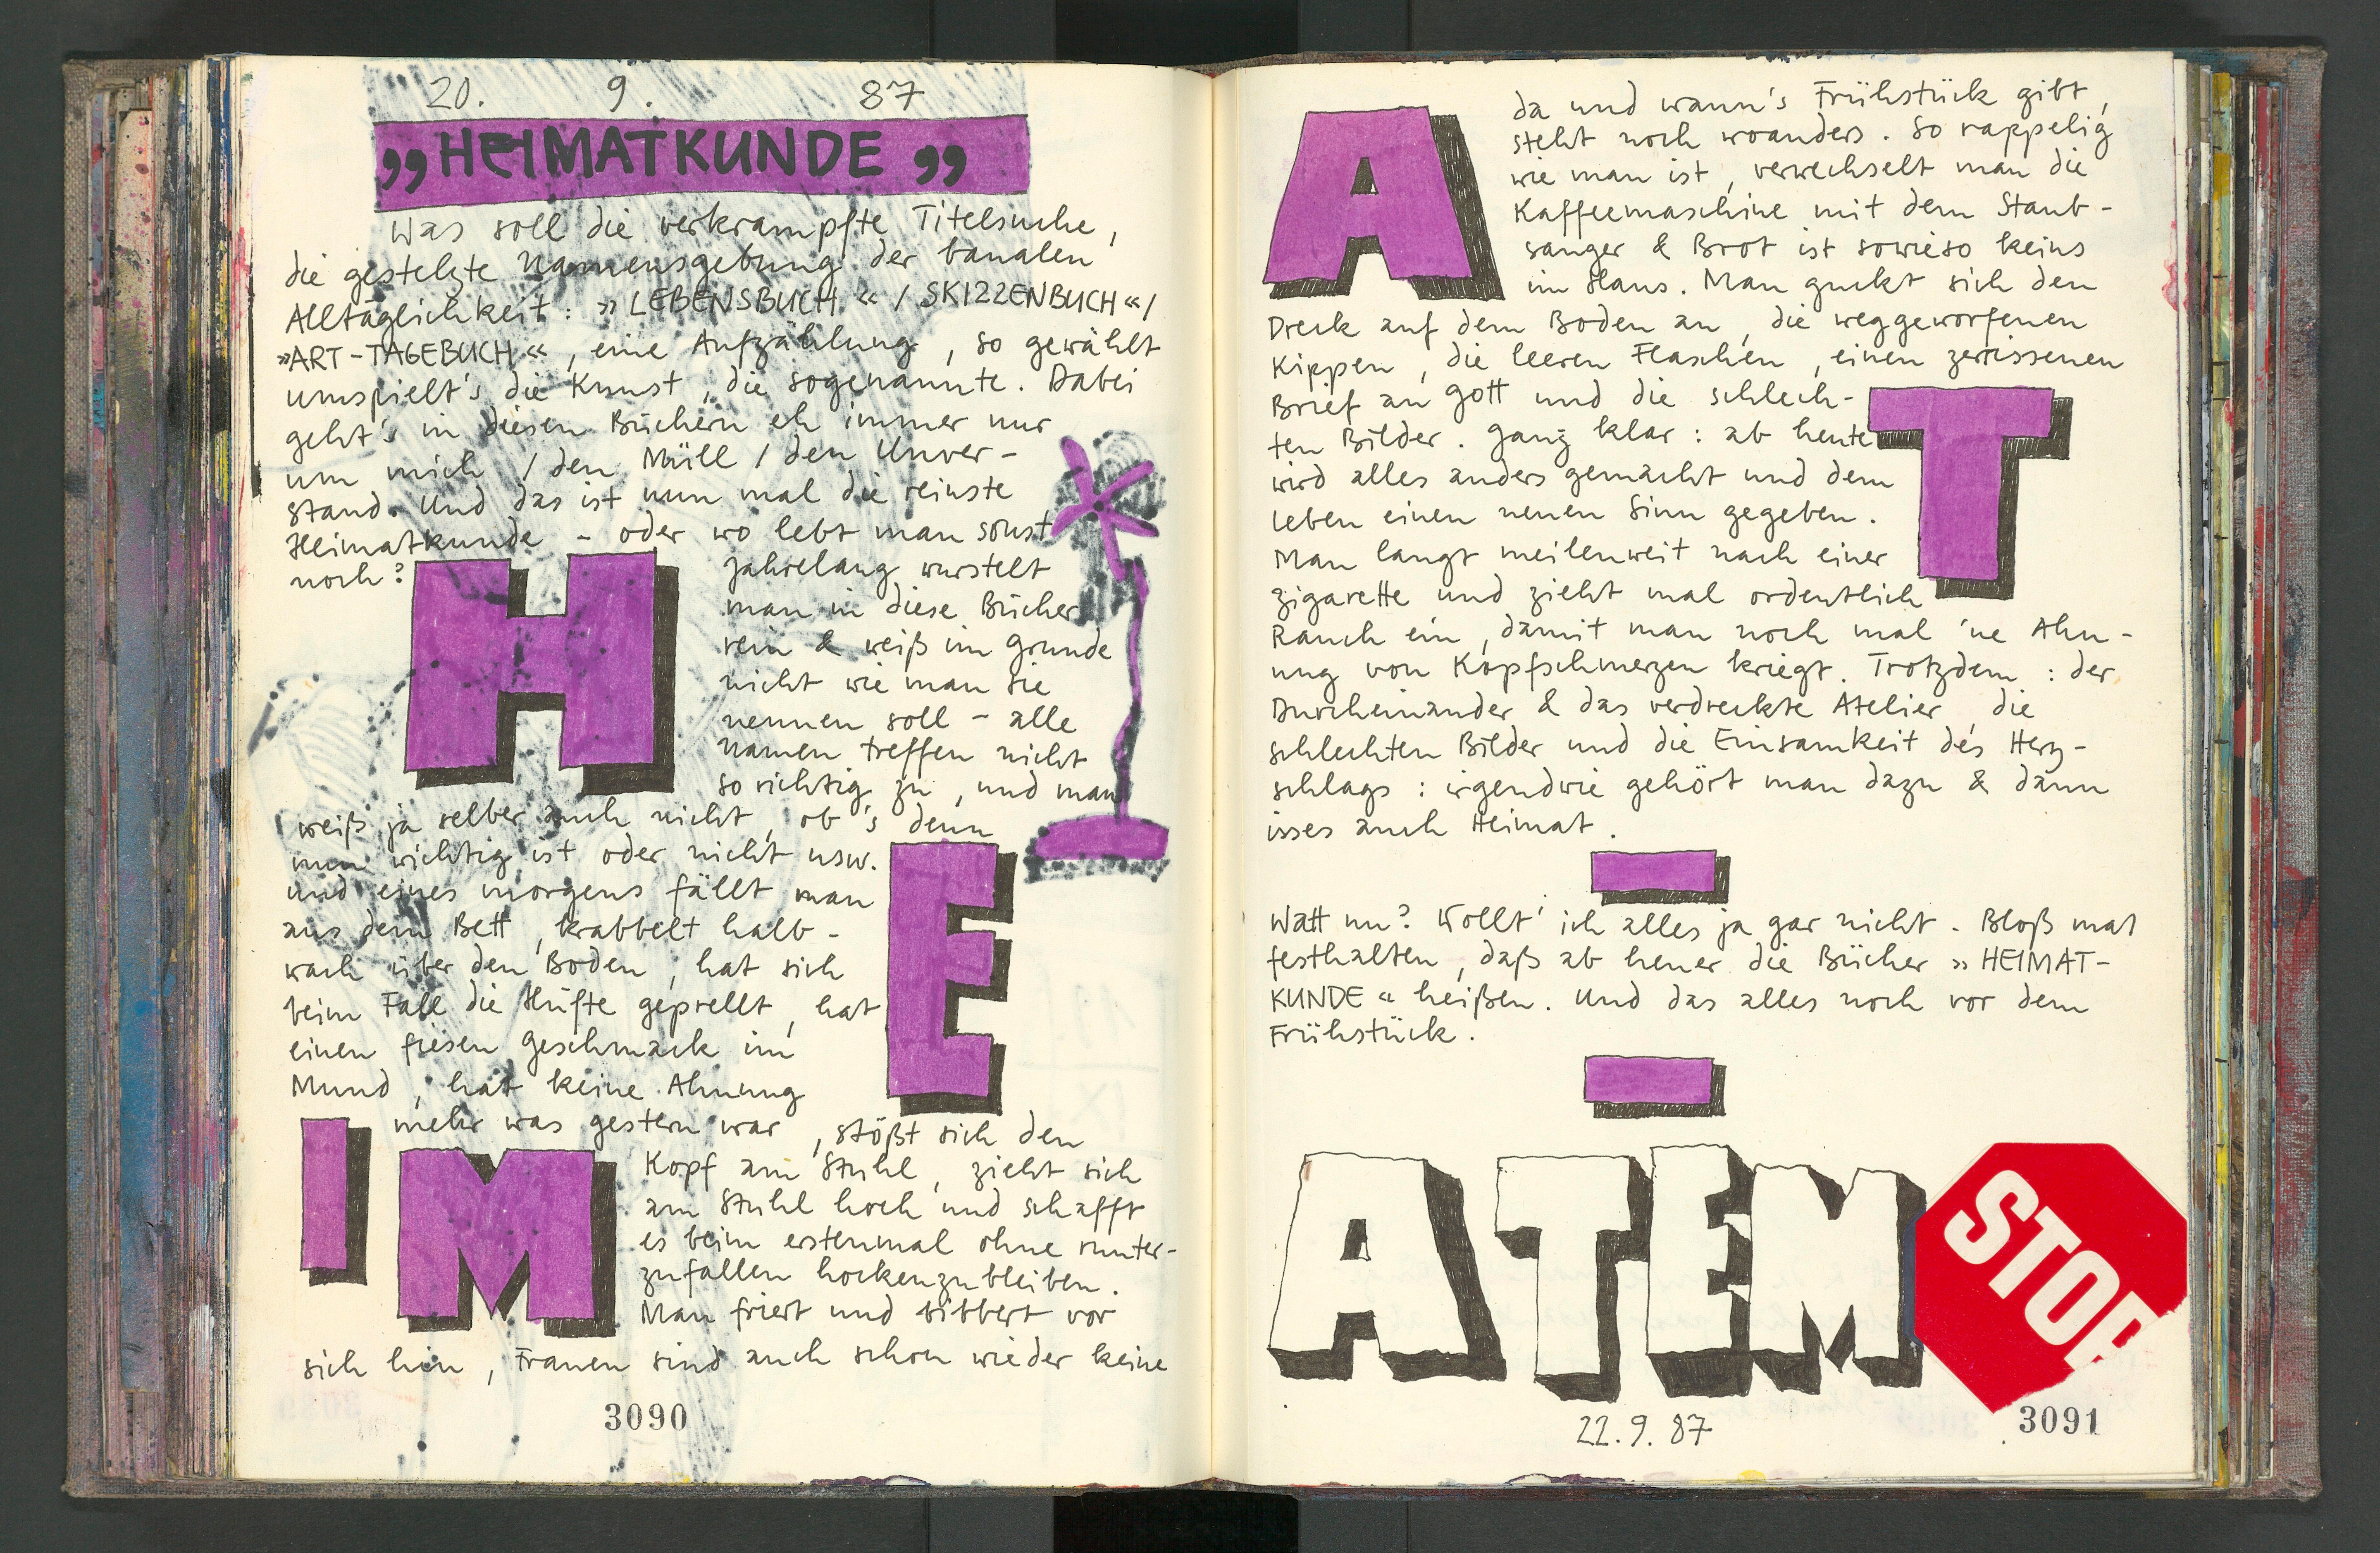 20. 9. 87
„HEIMATKUNDE„
Was soll die verkrampfte Titelsuche,
die gestelzte Namensgebung der banalen
Alltäglichkeit: »LEBENSBUCH« / SKIZZENBUCH« /
»ART-TAGEBUCH«, eine Aufzählung, so gewählt
umspielt's die Kunst, die sogenannte. Dabei
geht's in diesen Büchern eh immer nur
um mich / den Müll / den Unver-
stand. Und das ist nun mal die reinste
Heimatkunde - oder wo lebt man sonst
noch?
H
Jahrelang wurstelt
man in diese Bücher
rein & weiß im Grunde
nicht wie man sie
nennen soll - alle
Namen treffen nicht
so richtig zu, und man
weiß ja selber auch nicht, ob's denn
nun wichtig ist oder nicht usw.
E
und eines morgens fällt man
aus dem Bett, krabbelt halb-
wach über den Boden, hat sich
beim Fall die Hüfte geprellt, hat
einen fiesen Geschmack im
Mund, hat keine Ahnung
mehr was gestern war, stößt sich den
I M
Kopf am Stuhl, zieht sich
am Stuhl hoch und schafft
es beim erstenmal ohne runter-
zufallen hockenzubleiben.
Man friert und bibbert vor
sich hin, Frauen sind auch schon wieder keine
3090
A
da und wann's Frühstück gibt,
steht noch woanders. So rappelig
wie man ist, verwechselt man die
Kaffeemaschine mit dem Staub-
sauger & Brot ist sowieso keins
im Haus. Man guckt sich den
Dreck auf dem Boden an, die weggeworfenen
Kippen, die leeren Flaschen, einen zerrissenen
Brief an Gott und die schlech-
T
ten Bilder. Ganz klar: ab heute
wird alles anders gemacht und dem
Leben einen neuen Sinn gegeben.
Man langt meilenweit nach einer
Zigarette und zieht mal ordentlich
Rauch ein, damit man noch mal 'ne Ahn-
ung von Kopfschmerzen kriegt. Trotzdem: der
Durcheinander & das verdreckte Atelier, die
schlechten Bilder und die Einsamkeit des Herz-
schlags: irgendwie gehört man dazu & dann
isses auch Heimat.
Watt nu? Wollt' ich alles ja gar nicht. Bloß mal
festhalten, daß ab heuer die Bücher »HEIMAT-
KUNDE« heißen. Und das alles noch vor dem
Frühstück.
ATEM STOP
22.9.87
3091